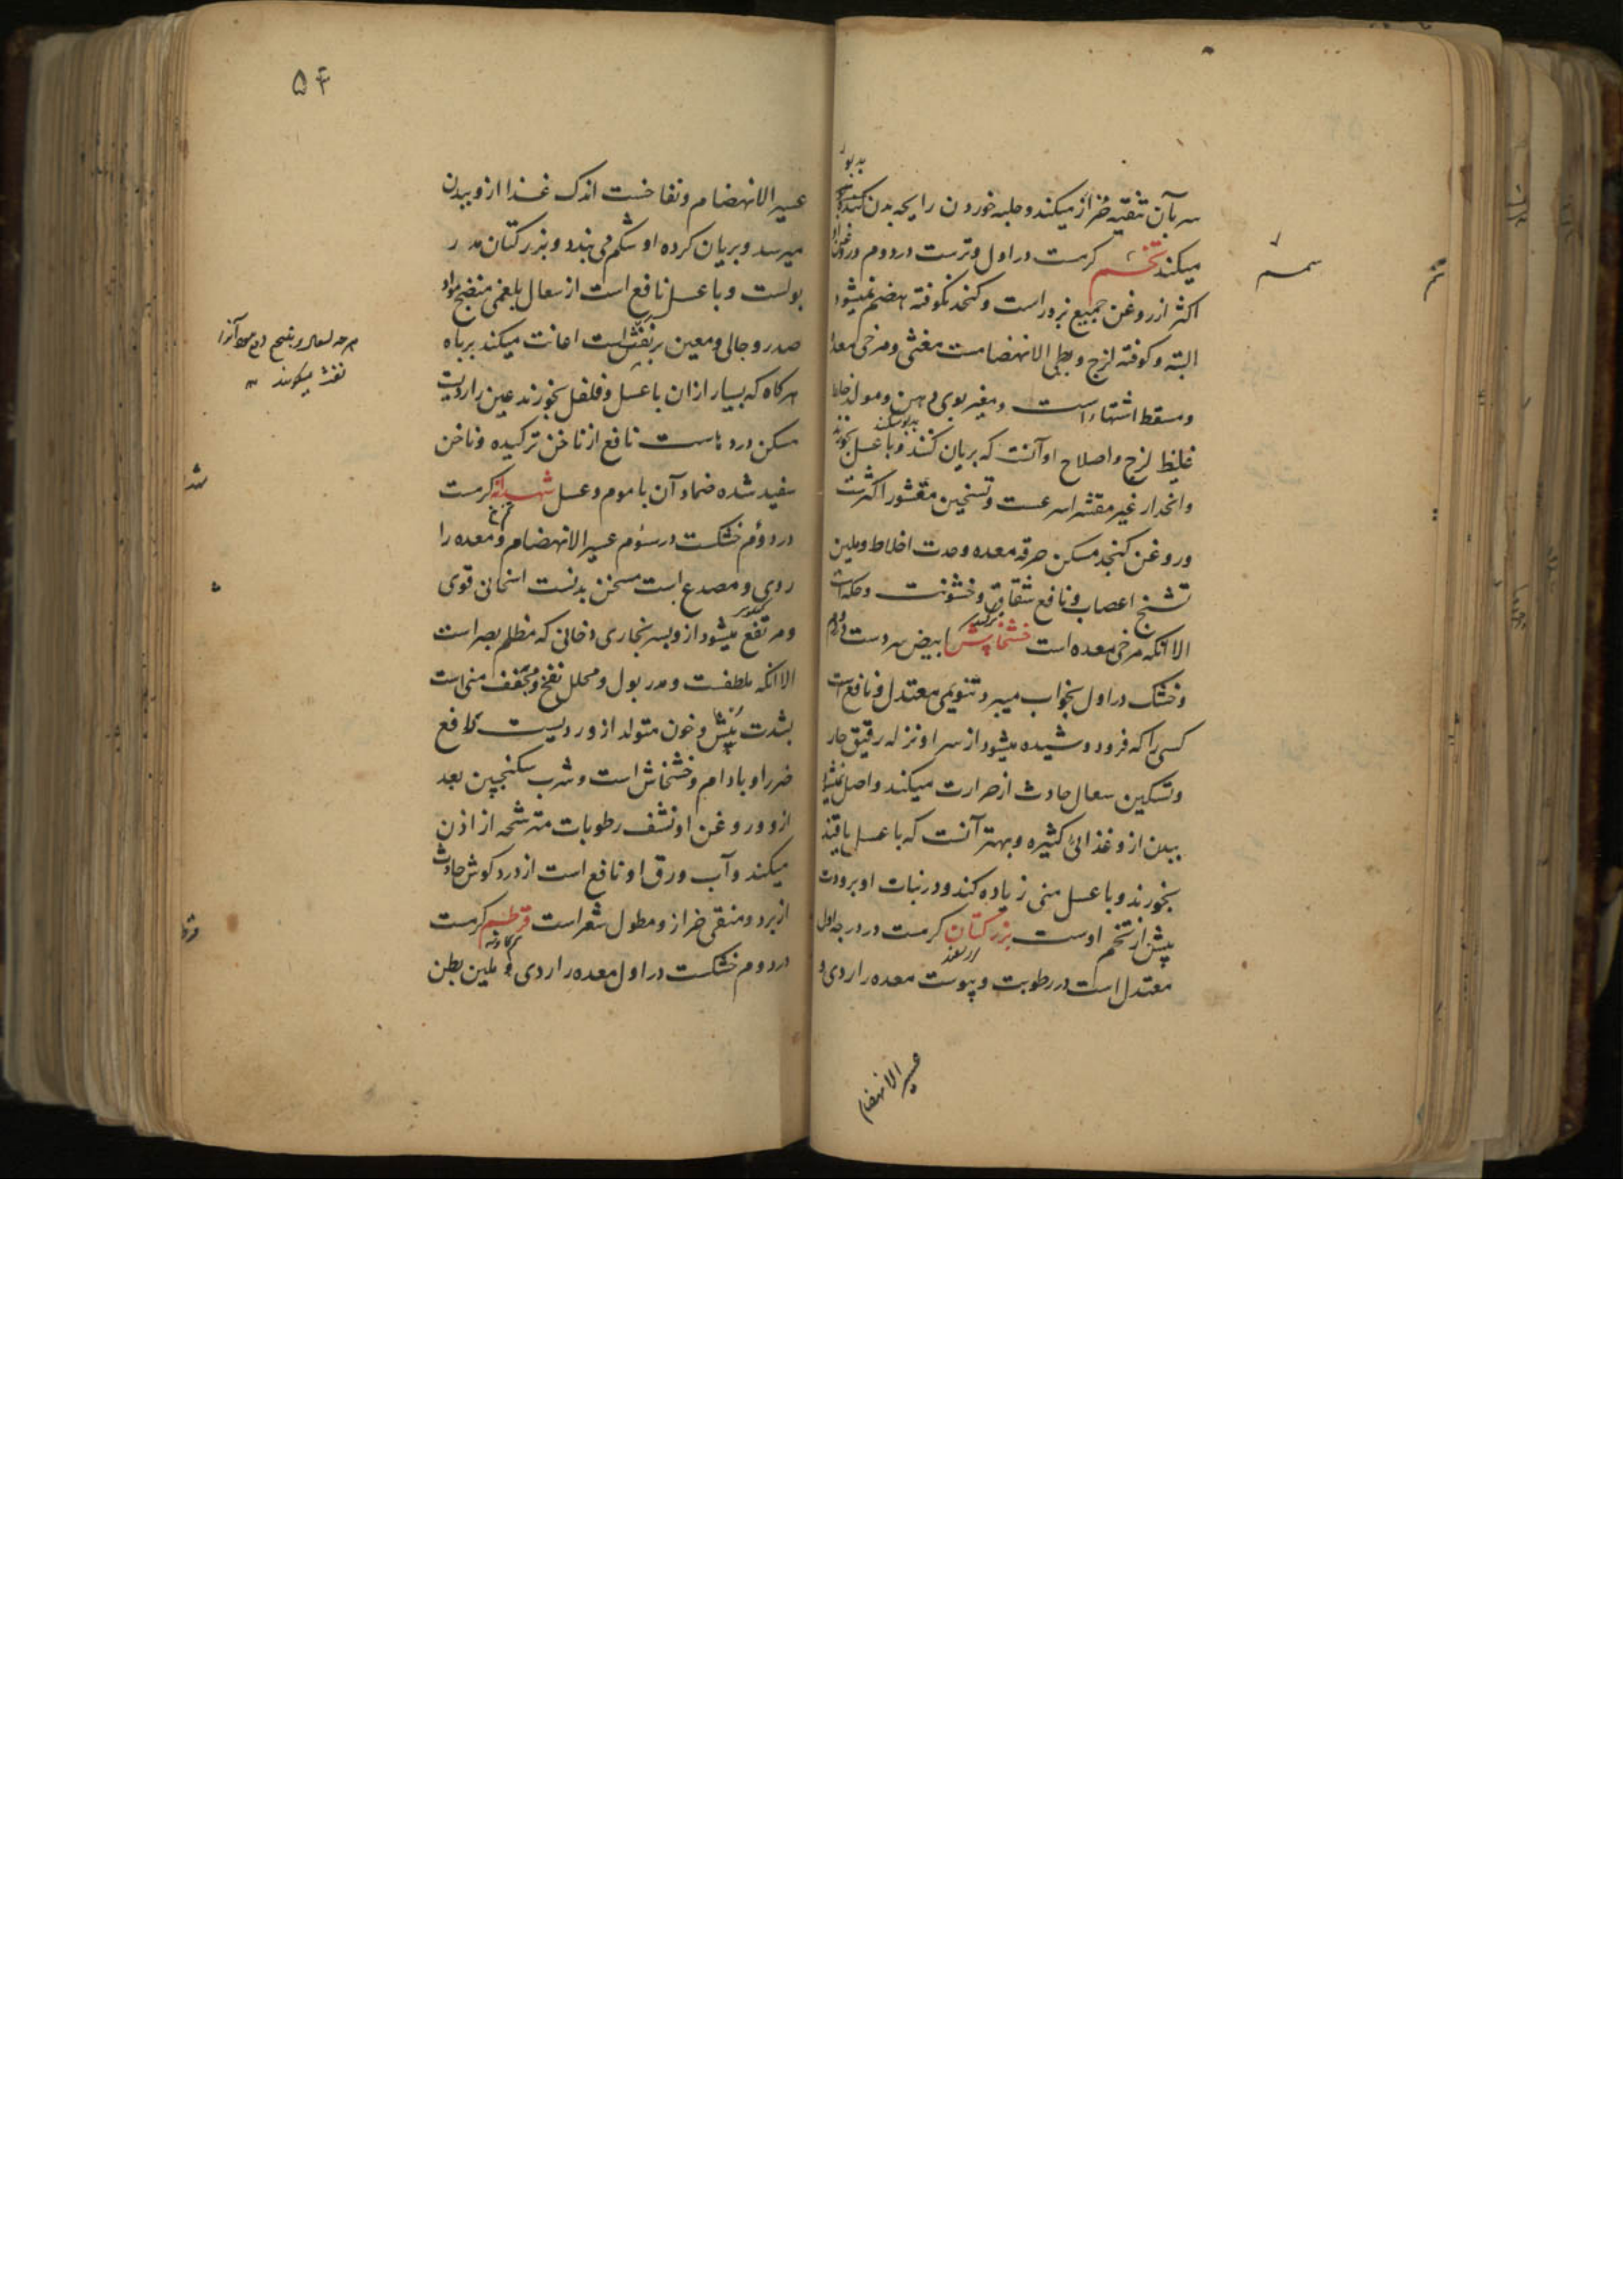 سر بآن تنقیه حزاز میکند و حلبه خوردن رایحه بدن کنده
میکند تخم کرمست در اول و ترست در دوم و روغن او
اکثر از روغن جمیع بزور است و کنجد نکوفته هضم نمیشود
البته و کوفته لزج و بطی الانهضامست مغثی و مرخی معده
و مسقط اشتهاء است و مغیر بوی دهن و مولد خلط
غلیظ لزج و اصلاح او آنست که بریان کنند و با عسل بخورند
و انحدار غیر مقشر اسرعست و تسخین مقشور اکثرست
و روغن کنجد مسکن حرقه معده و حدت اخلاط و ملین
تشنج اعصاب و نافع شقاق و خشونت و حکه است
الا انکه مرخی معده است خشخاش ابیض سردست در دوم
و خشک در اول بخواب میبرد تنویمی معتدل و نافع است
کسی را که فرود دوشیده میشود از سر او نزله رقیق حار
و تسکین سعال حادث از حرارت میکند و اصل نمیشود
ببدن ازو غذائی کثیره و بهتر آنست که با عسل یا قند
بخورند و با عسل منی زیاده کند و در نبات او برودت
پیش از تخم اوست بزر کتان کرمست در درجه اول
معتدل است در رطوبت و یبوست معده را ردی و
عسیر الانهضام
سمسم
۵۴
عسیر الانهضام و نفاخست اندک غذا ازو ببدن
میرسد و بریان کرده او شکم می بندد و بزر کتان مدر
بولست و با عسل نافع است از سعال بلغمی منضج مواد
صدر و جالی و معین بر نفث است اعانت میکند بر باه
هرکاه که بسیار از ان با عسل و فلفل بخورند عین را ردیست
مسکن دردهاست نافع از ناخن ترکیده و ناخن
سفید شده ضماد آن با موم و عسل شهدانه کرمست
در دوم خشکست در سوم عسیر الانهضام و معده را
ردی و مصدع است مسخن بدنست اسخان قوی
و مرتفع میشود ازو بسر بخاری دخانی که مظلم بصر است
الا انکه ملطفست و مدر بول و محلل نفخ و مجفف منی است
بشدت و خون متولد ازو ردیست دافع
ضرر او بادام و خشخاش است و شرب سکنجبین بعد
ازو و روغن او نشف رطوبات مترشحه از اذن
میکند و آب ورق او نافع است از درد کوش حادث
از برد و منقی حزاز و مطول شعر است قرطم کرمست
در دوم خشکست در اول معده را ردی و ملین بطن
نفث میکویند